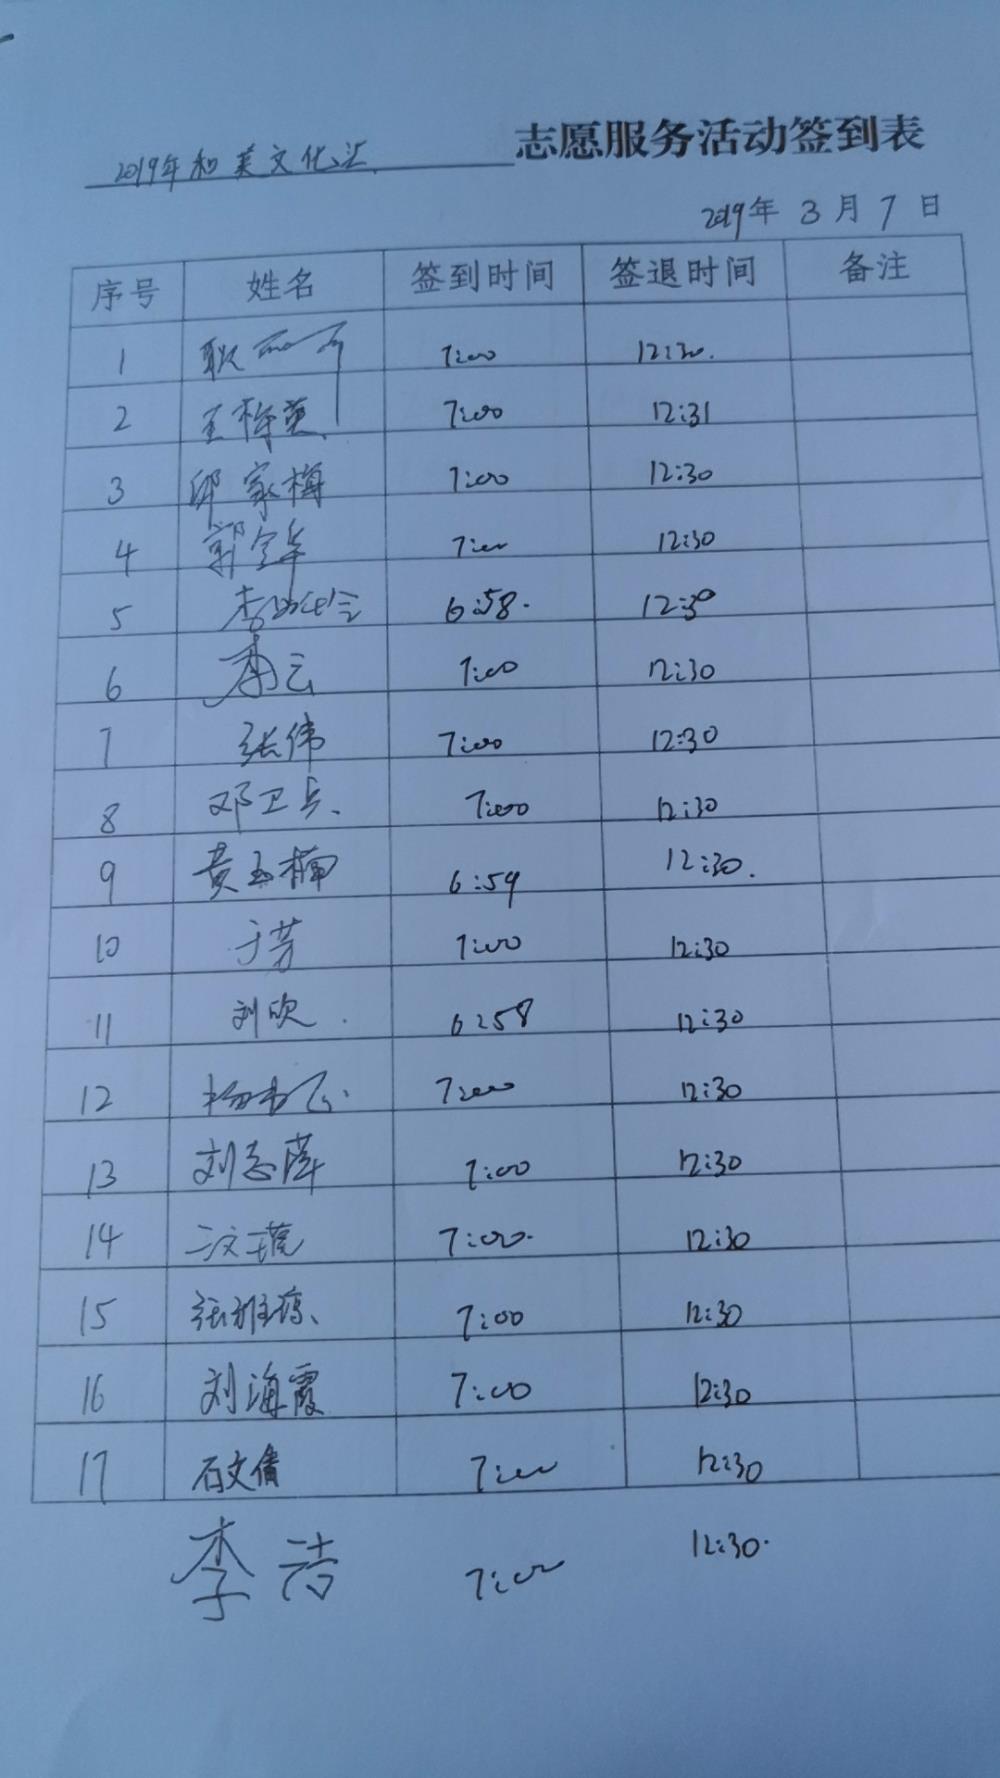 2019年和美文化汇 志愿服务活动签到表
2019年 3 月 7 日
序号 姓名 签到时间 签退时间 备注
1 耿 7:00 12:30.
2 王梅英 7:00 12:31
3 邱家梅 7:00 12:30
4 郭全华 7:00 12:30
5 李 6:58. 12:30
6 李云 7:00 12:30
7 张伟 7:00 12:30
8 邓卫兵. 7:00 12:30
9 黄玉楠 6:59 12:30.
10 于芳 7:00 12:30
11 刘欣. 6:58 12:30
12 杨 飞. 7:00 12:30
13 刘志萍 7:00 12:30
14 7:00. 12:30
15 张雅 7:00 12:30
16 刘海霞 7:00 12:30
17 石文倩 7:00 12:30
李洁 7:00 12:30.